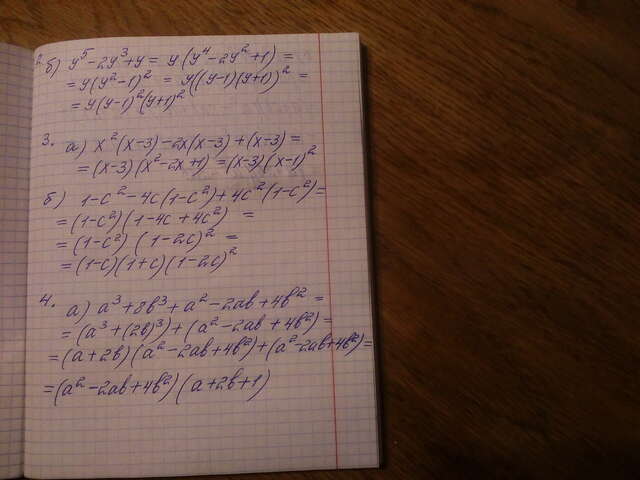 2. б) y⁵-2y³+y = y(y⁴-2y²+1) =
= y(y²-1)² = y((y-1)(y+1))² =
= y(y-1)²(y+1)²
3. а) x²(x-3)-2x(x-3)+(x-3) =
= (x-3)(x²-2x+1) = (x-3)(x-1)²
б) 1-c²-4c(1-c²)+4c²(1-c²) =
= (1-c²)(1-4c+4c²) =
= (1-c²)(1-2c)² =
= (1-c)(1+c)(1-2c)²
4. а) a³+8b³+a²-2ab+4b² =
= (a³+(2b)³)+(a²-2ab+4b²) =
= (a+2b)(a²-2ab+4b²)+(a²-2ab+4b²) =
= (a²-2ab+4b²)(a+2b+1)